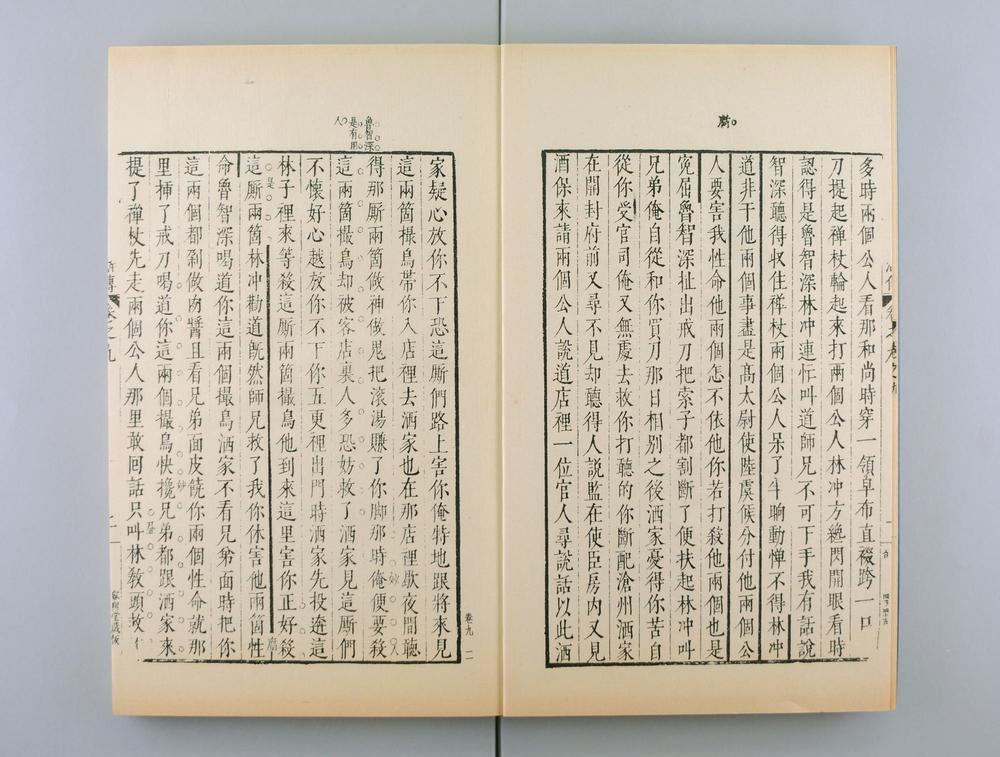 𪋤
多時兩個公人看那和尚時穿一領皁布直裰跨一口
刀提起禪杖輪起來打兩個公人林冲方纔閃開眼看時
認得是魯智深林冲連忙叫道師兄不可下手我有話說
智深聽得収住禪杖兩個公人呆了半晌動憚不得林冲
道非干他兩個事盡是高太尉使陸虞候分付他兩個公
人要害我性命他兩個怎不依他你若打殺他兩個也是
寃屈魯智深扯出戒刀把索子都割斷了便扶起林冲叫
兄弟俺自從和你買刀那日相別之後洒家憂得你苦自
從你受官司俺又無處去救你打聽的你斷配滄州洒家
在開封府前又尋不見却聽得人說監在使臣房内又見
酒保來請兩個公人說道店裡一位官人尋說話以此洒
卷九 二
魯智深
是有用
人
家疑心放你不下恐這厮們路上害你俺特地跟將來見
這兩箇撮鳥帶你入店裡去洒家也在那店裡歇夜間聽
得那厮兩箇做神做鬼把滾湯賺了你脚那時俺便要殺
這兩箇撮鳥却被客店裏人多恐妨救了洒家見這厮們
不懷好心越放你不下你五更裡出門時洒家先投遶這
林子裡來等殺這厮兩箇撮鳥他到來這里害你正好殺
這厮兩箇林冲勸道旣然師兄救了我你休害他兩箇性
命魯智深喝道你這兩個撮鳥洒家不看兄弟面時把你
這兩個都剁做肉醬且看兄弟面皮饒你兩個性命就那
里揷了戒刀喝道你這兩個撮鳥快攙兄弟都跟洒家來
提了禪杖先走兩個公人那里敢回話只叫林敎頭救